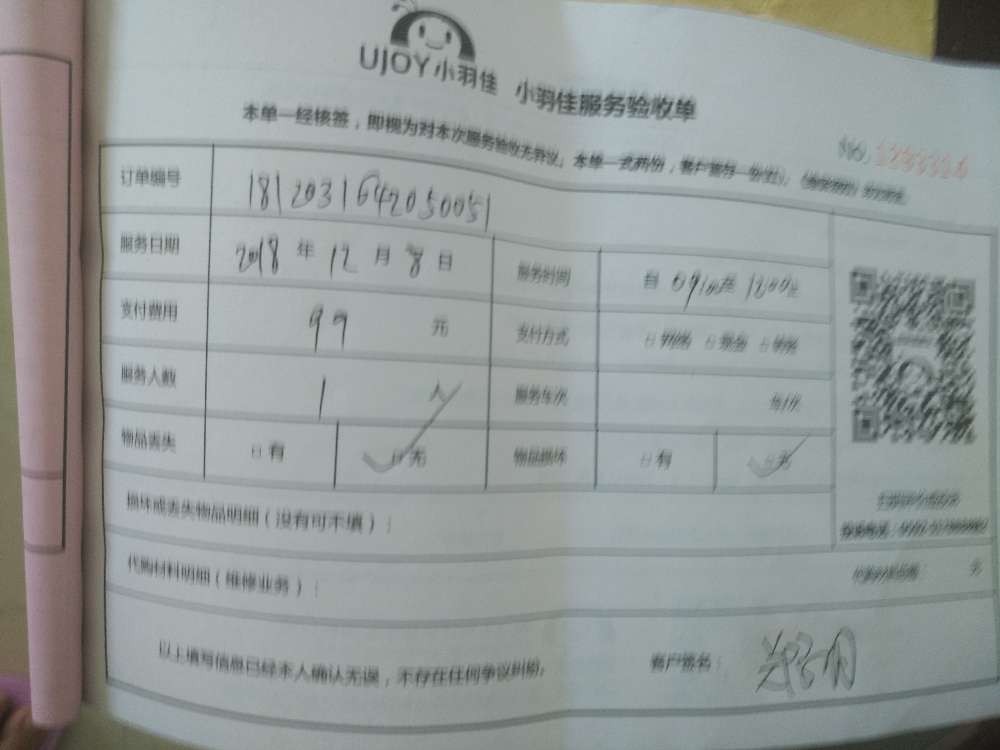 UJOY小羽佳 小羽佳服务验收单
本单一经核签，即视为对本次服务验收无异议。本单一式两份，客户留存一份
NO.
订单编号 1812031642050051
服务日期 2018 年 12 月 8 日 服务时间 自 0900至 1200止
支付费用 99 元 支付方式 现金
服务人数 1 人 服务车次
物品丢失 有 无 物品损坏 有 无
损坏或丢失物品明细（没有可不填）：
代购材料明细（维修业务）： 元
以上填写信息已经本人确认无误，不存在任何争议纠纷。 客户签名：